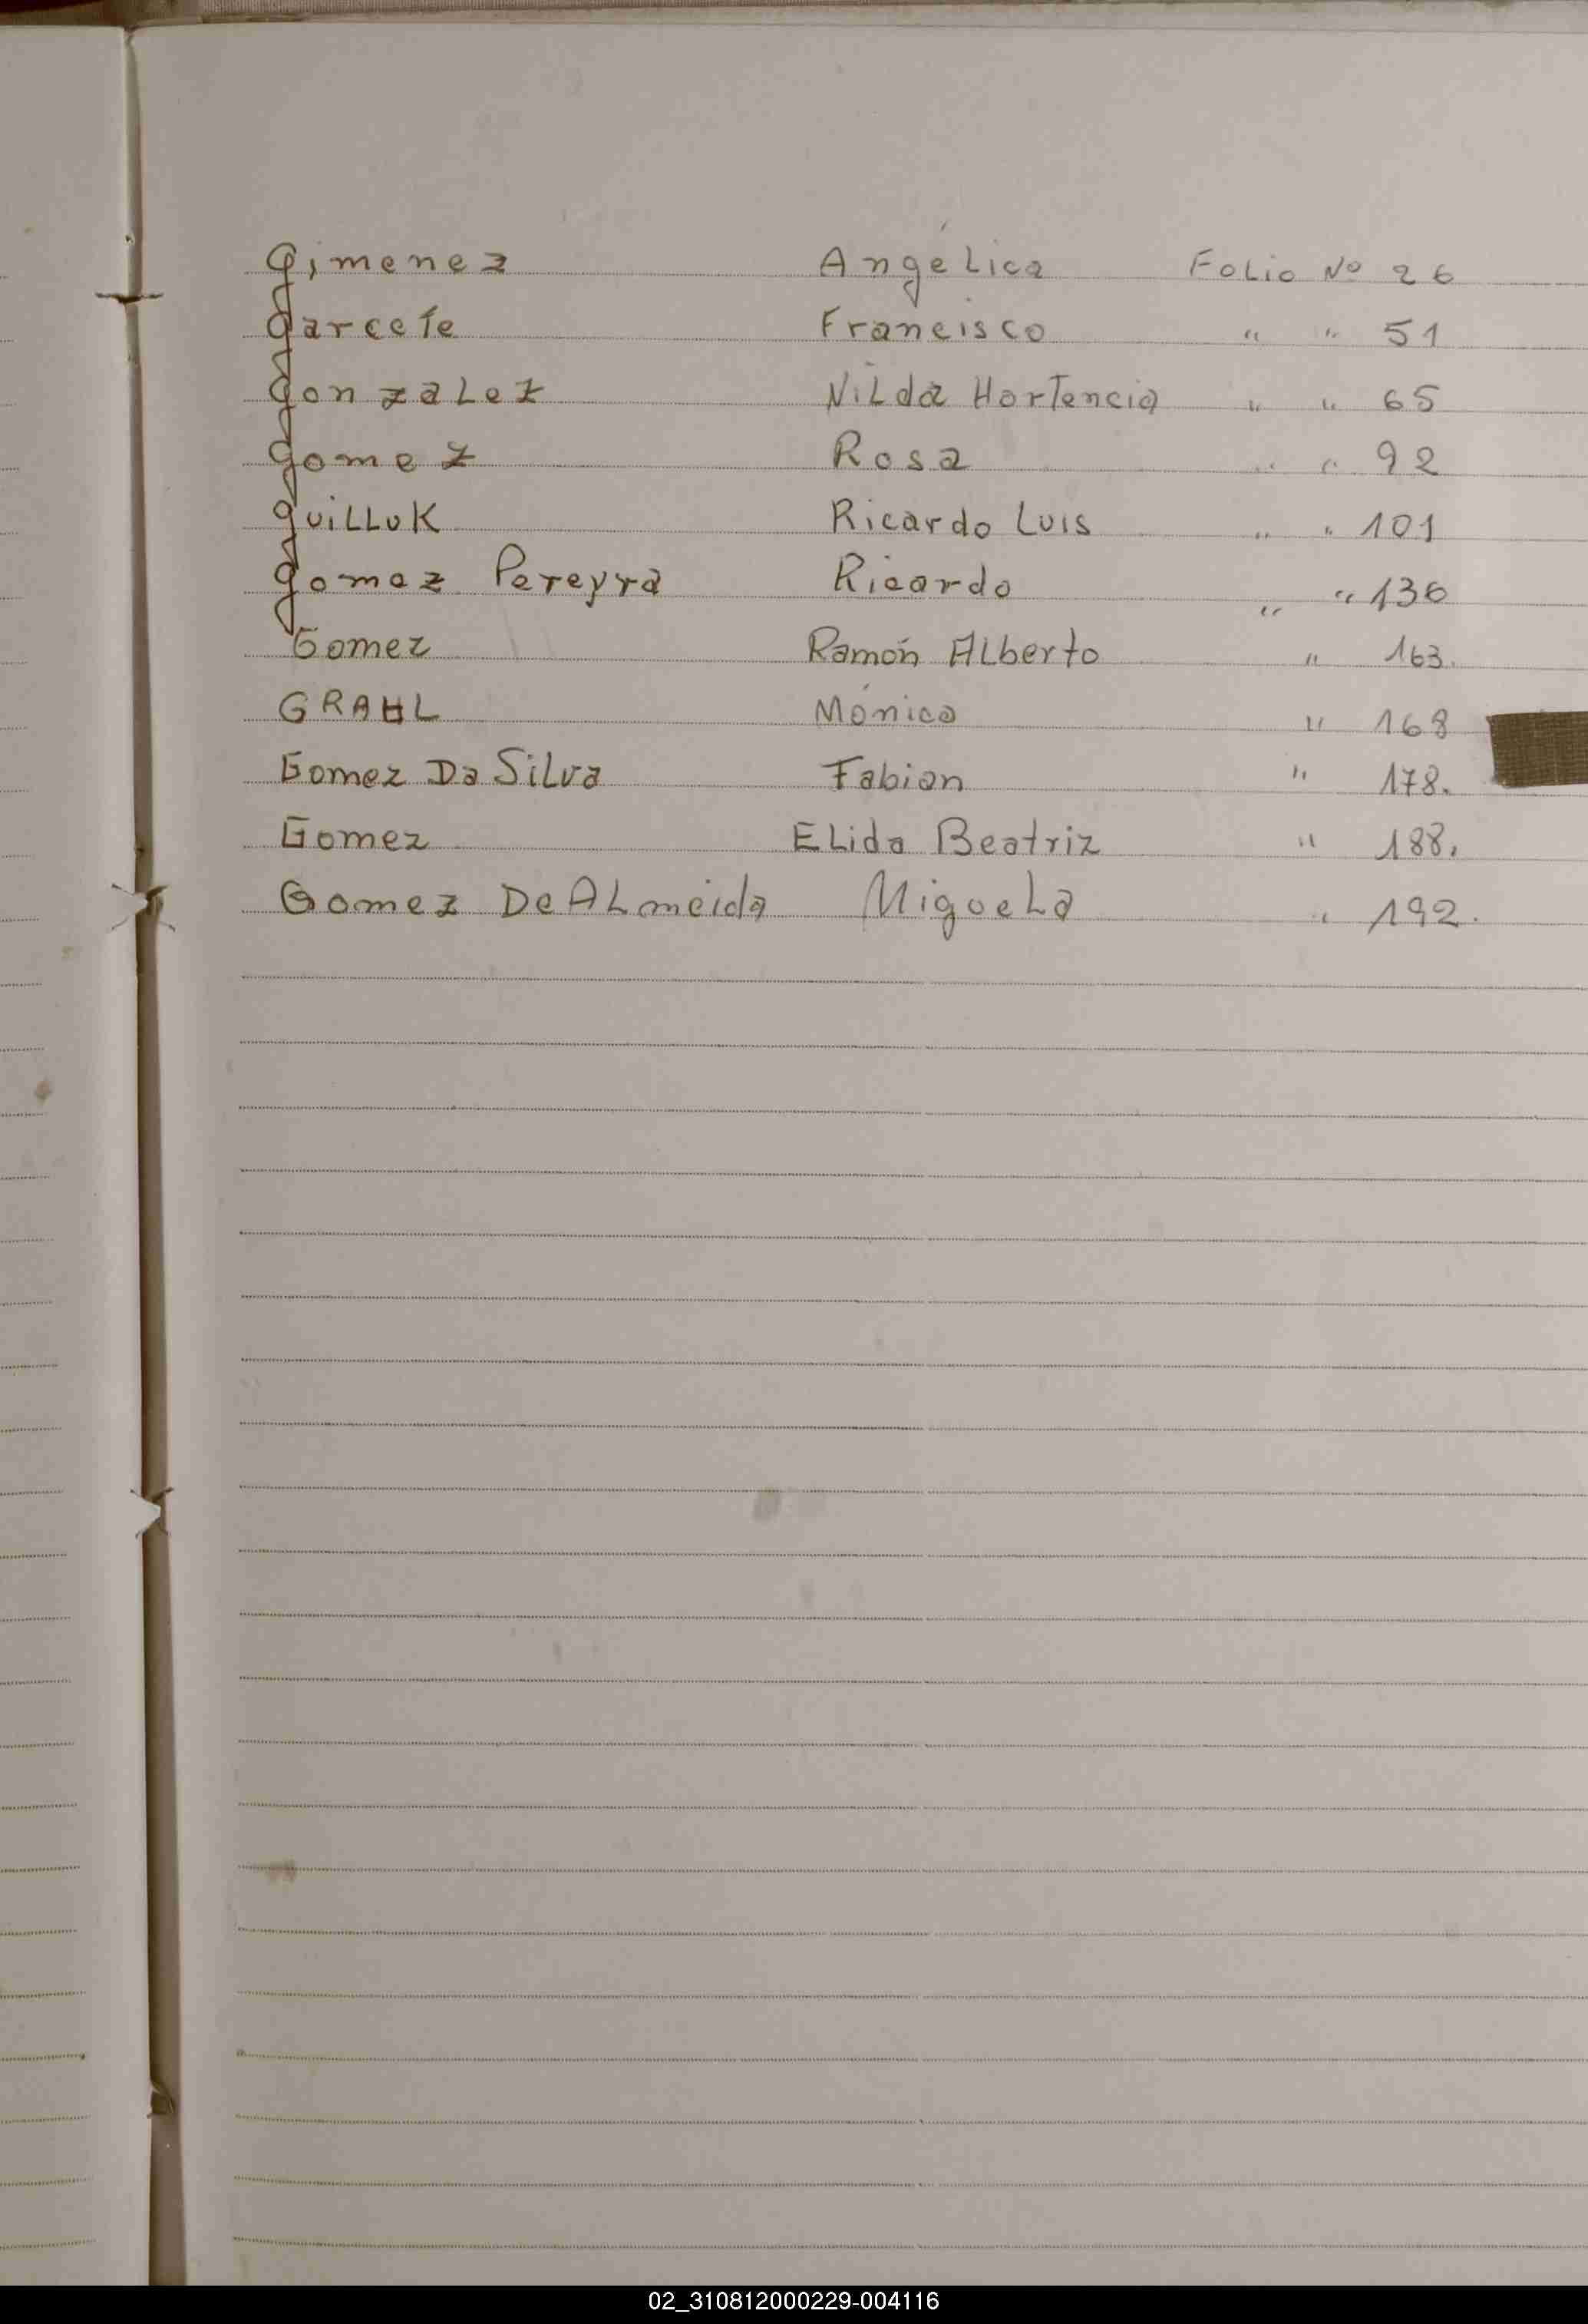 Gimenez Angélica Folio Nº 26
Garcete Francisco " " 51
Gonzalez Nilda Hortencia " " 65
Gomez Rosa " " 92
Guilluk Ricardo Luis " " 101
Gomez Pereyra Ricardo " " 136
Gomez Ramón Alberto " 163.
GRAHL Mónica " 168
Gomez Da Silva Fabian " 178.
Gomez Elida Beatriz " 188.
Gomez De Almeida Miguela " 192.
02_310812000229-004116